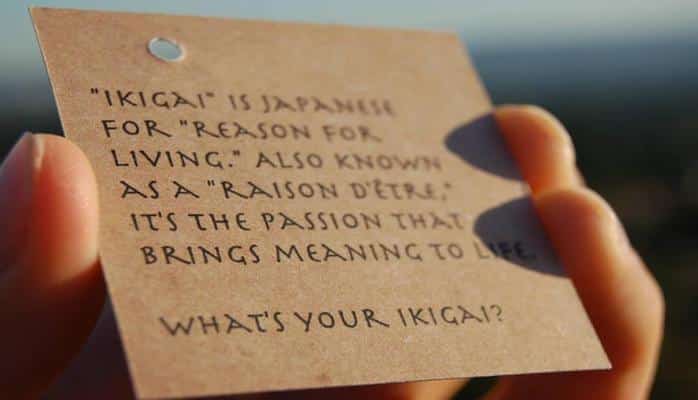 "IKIGAI" IS JAPANESE
FOR "REASON FOR
LIVING." ALSO KNOWN
AS A "RAISON D'ÊTRE,"
IT'S THE PASSION THAT
BRINGS MEANING TO LIFE.
WHAT'S YOUR IKIGAI?